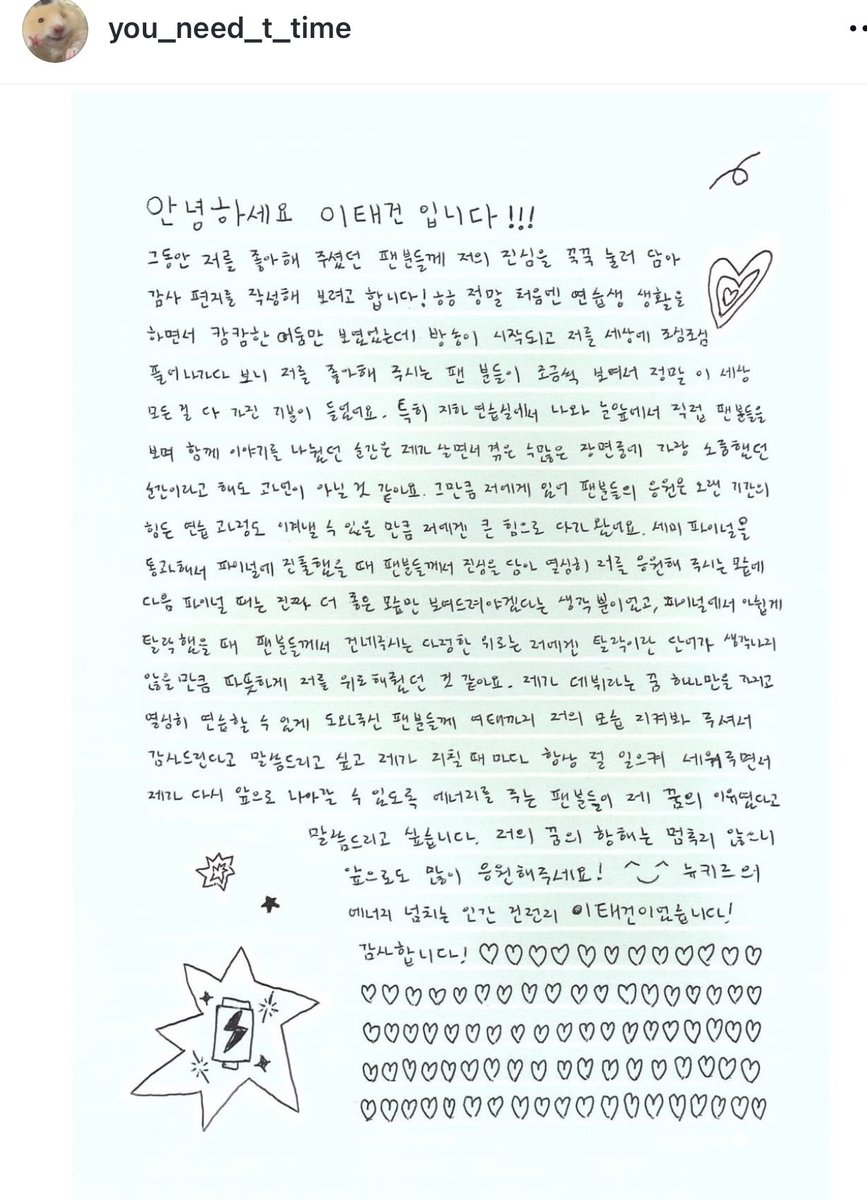 you_need_t_time
안녕하세요 이태건 입니다!!!
그동안 저를 좋아해 주셨던 팬분들께 저의 진심을 꾹꾹 눌러 담아
감사 편지를 작성해 보려고 합니다! ㅎㅎ 정말 처음엔 연습생 생활을
하면서 캄캄한 어둠만 보였었는데 방송이 시작되고 저를 세상에 조심조심
풀어나가다 보니 저를 좋아해 주시는 팬 분들이 조금씩 보여서 정말 이 세상
모든걸 다 가진 기분이 들었어요. 특히 지하 연습실에서 나와 눈앞에서 직접 팬분들을
보며 함께 이야기를 나눴던 순간은 제가 살면서 겪은 수많은 장면중에 가장 소중했던
순간이라고 해도 과언이 아닐 것 같아요. 그만큼 저에게 있어 팬분들의 응원은 오랜 기간의
힘든 연습 과정도 이겨낼 수 있을 만큼 저에겐 큰 힘으로 다가왔어요. 세미 파이널을
통과해서 파이널에 진출했을 때 팬분들께서 진심을 담아 열심히 저를 응원해 주시는 모습에
다음 파이널 때는 진짜 더 좋은 모습만 보여드려야겠다는 생각 뿐이었고, 파이널에서 아쉽게
탈락했을 때 팬분들께서 건네주시는 다정한 위로는 저에겐 탈락이란 단어가 생각나지
않을 만큼 따뜻하게 저를 위로해줬던 것 같아요. 제가 데뷔라는 꿈 하나만을 가지고
열심히 연습할 수 있게 도와주신 팬분들께 여태까지 저의 모습 지켜봐 주셔서
감사드린다고 말씀드리고 싶고 제가 지칠 때 마다 항상 절 일으켜 세워주면서
제가 다시 앞으로 나아갈 수 있도록 에너지를 주는 팬분들이 제 꿈의 이유였다고
말씀드리고 싶습니다. 저의 꿈의 항해는 멈추지 않으니
앞으로도 많이 응원해주세요! ^‿^ 뉴키즈의
에너지 넘치는 인간 건전지 이태건이었습니다!
감사합니다! ♡♡♡♡♡♡♡♡♡♡♡♡♡♡
♡♡♡♡♡♡♡♡♡♡♡♡♡♡♡♡♡♡♡
♡♡♡♡♡♡♡♡♡♡♡♡♡♡♡♡♡♡♡♡
♡♡♡♡♡♡♡♡♡♡♡♡♡♡♡♡♡♡♡
♡♡♡♡♡♡♡♡♡♡♡♡♡♡♡♡♡♡♡♡